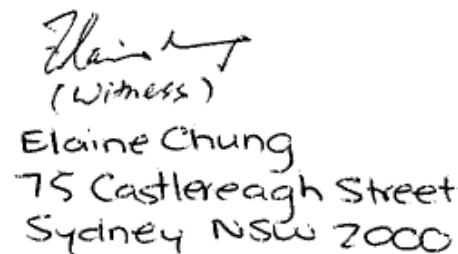 Elaine Chung
(Witness)
Elaine Chung
75 Castlereagh Street
Sydney NSW 2000